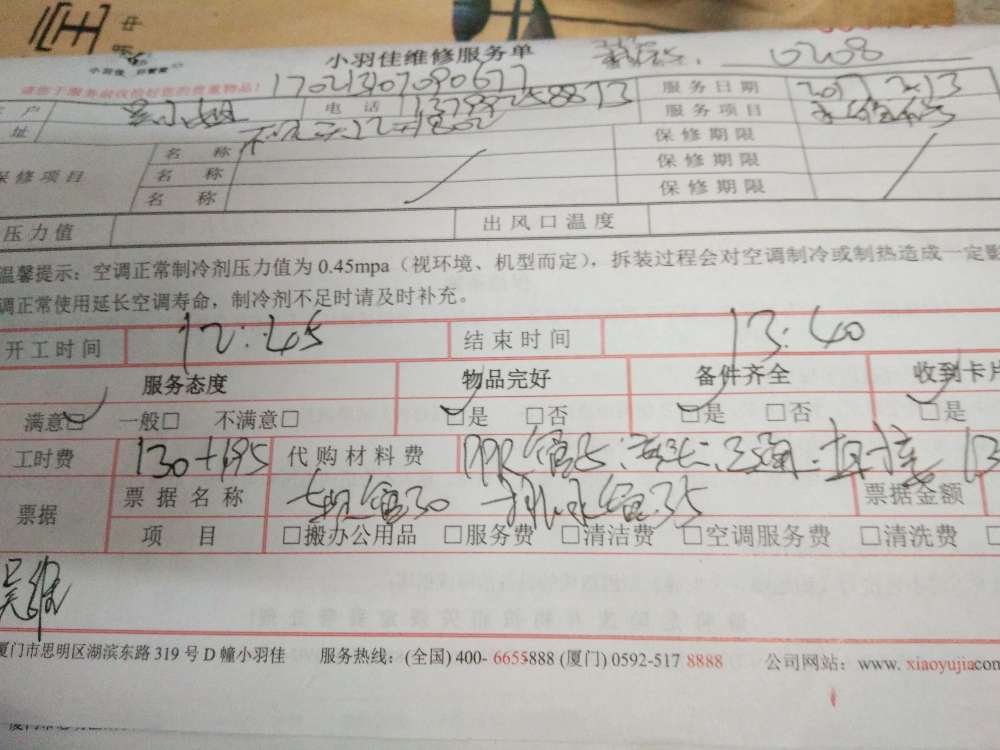 小羽佳维修服务单 0208
小羽佳
请您于服务前收好您的贵重物品! 17021307090677
户 吴小姐 电话 服务日期 2017 2.13
址 服务项目
保修项目 名称 保修期限
名称 保修期限
名称 保修期限
压力值 出风口温度
温馨提示：空调正常制冷剂压力值为 0.45mpa（视环境、机型而定），拆装过程会对空调制冷或制热造成一定影
调正常使用延长空调寿命，制冷剂不足时请及时补充。
开工时间 12:45 结束时间 13:40
服务态度 物品完好 备件齐全 收到卡片
满意□ 一般□ 不满意□ □是 □否 □是 □否 □是
工时费 130+195 代购材料费 PPR管5:
票据 票据名称 管30 排水管35 票据金额
项目 □搬办公用品 □服务费 □清洁费 □空调服务费 □清洗费
厦门市思明区湖滨东路 319 号 D 幢小羽佳 服务热线：(全国) 400-6655-888 (厦门) 0592-517 8888 公司网站：www.xiaoyujia.com